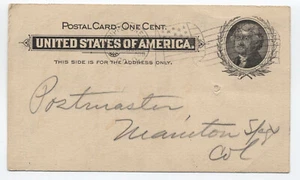 POSTAL CARD - ONE CENT.
UNITED STATES OF AMERICA.
THIS SIDE IS FOR THE ADDRESS ONLY.
Postmaster
Manitou Spgs
Col